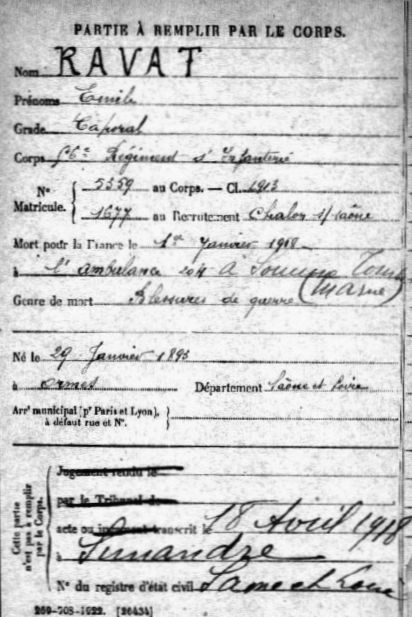 PARTIE À REMPLIR PAR LE CORPS.
Nom RAVAT
Prénoms Emile
Grade Caporal
Corps 56e Régiment d'Infanterie
N° Matricule. { 5359 au Corps. — Cl. 1913
1677 au Recrutement Chalon s/ Saône
Mort pour la France le 1er Janvier 1918
à l'ambulance 204 à Somme Tourbe
(Marne)
Genre de mort Blessures de guerre
Né le 29 Janvier 1893
à Ormes Département Saône et Loire
Arrt municipal (pr Paris et Lyon), à défaut rue et N°. }
Cette partie n'est pas à remplir par le Corps.
Jugement rendu le
par le Tribunal de
acte ou jugement transcrit le 18 Avril 1918
à Simandre
N° du registre d'état civil Saône et Loire
269-708-1922. [26434]